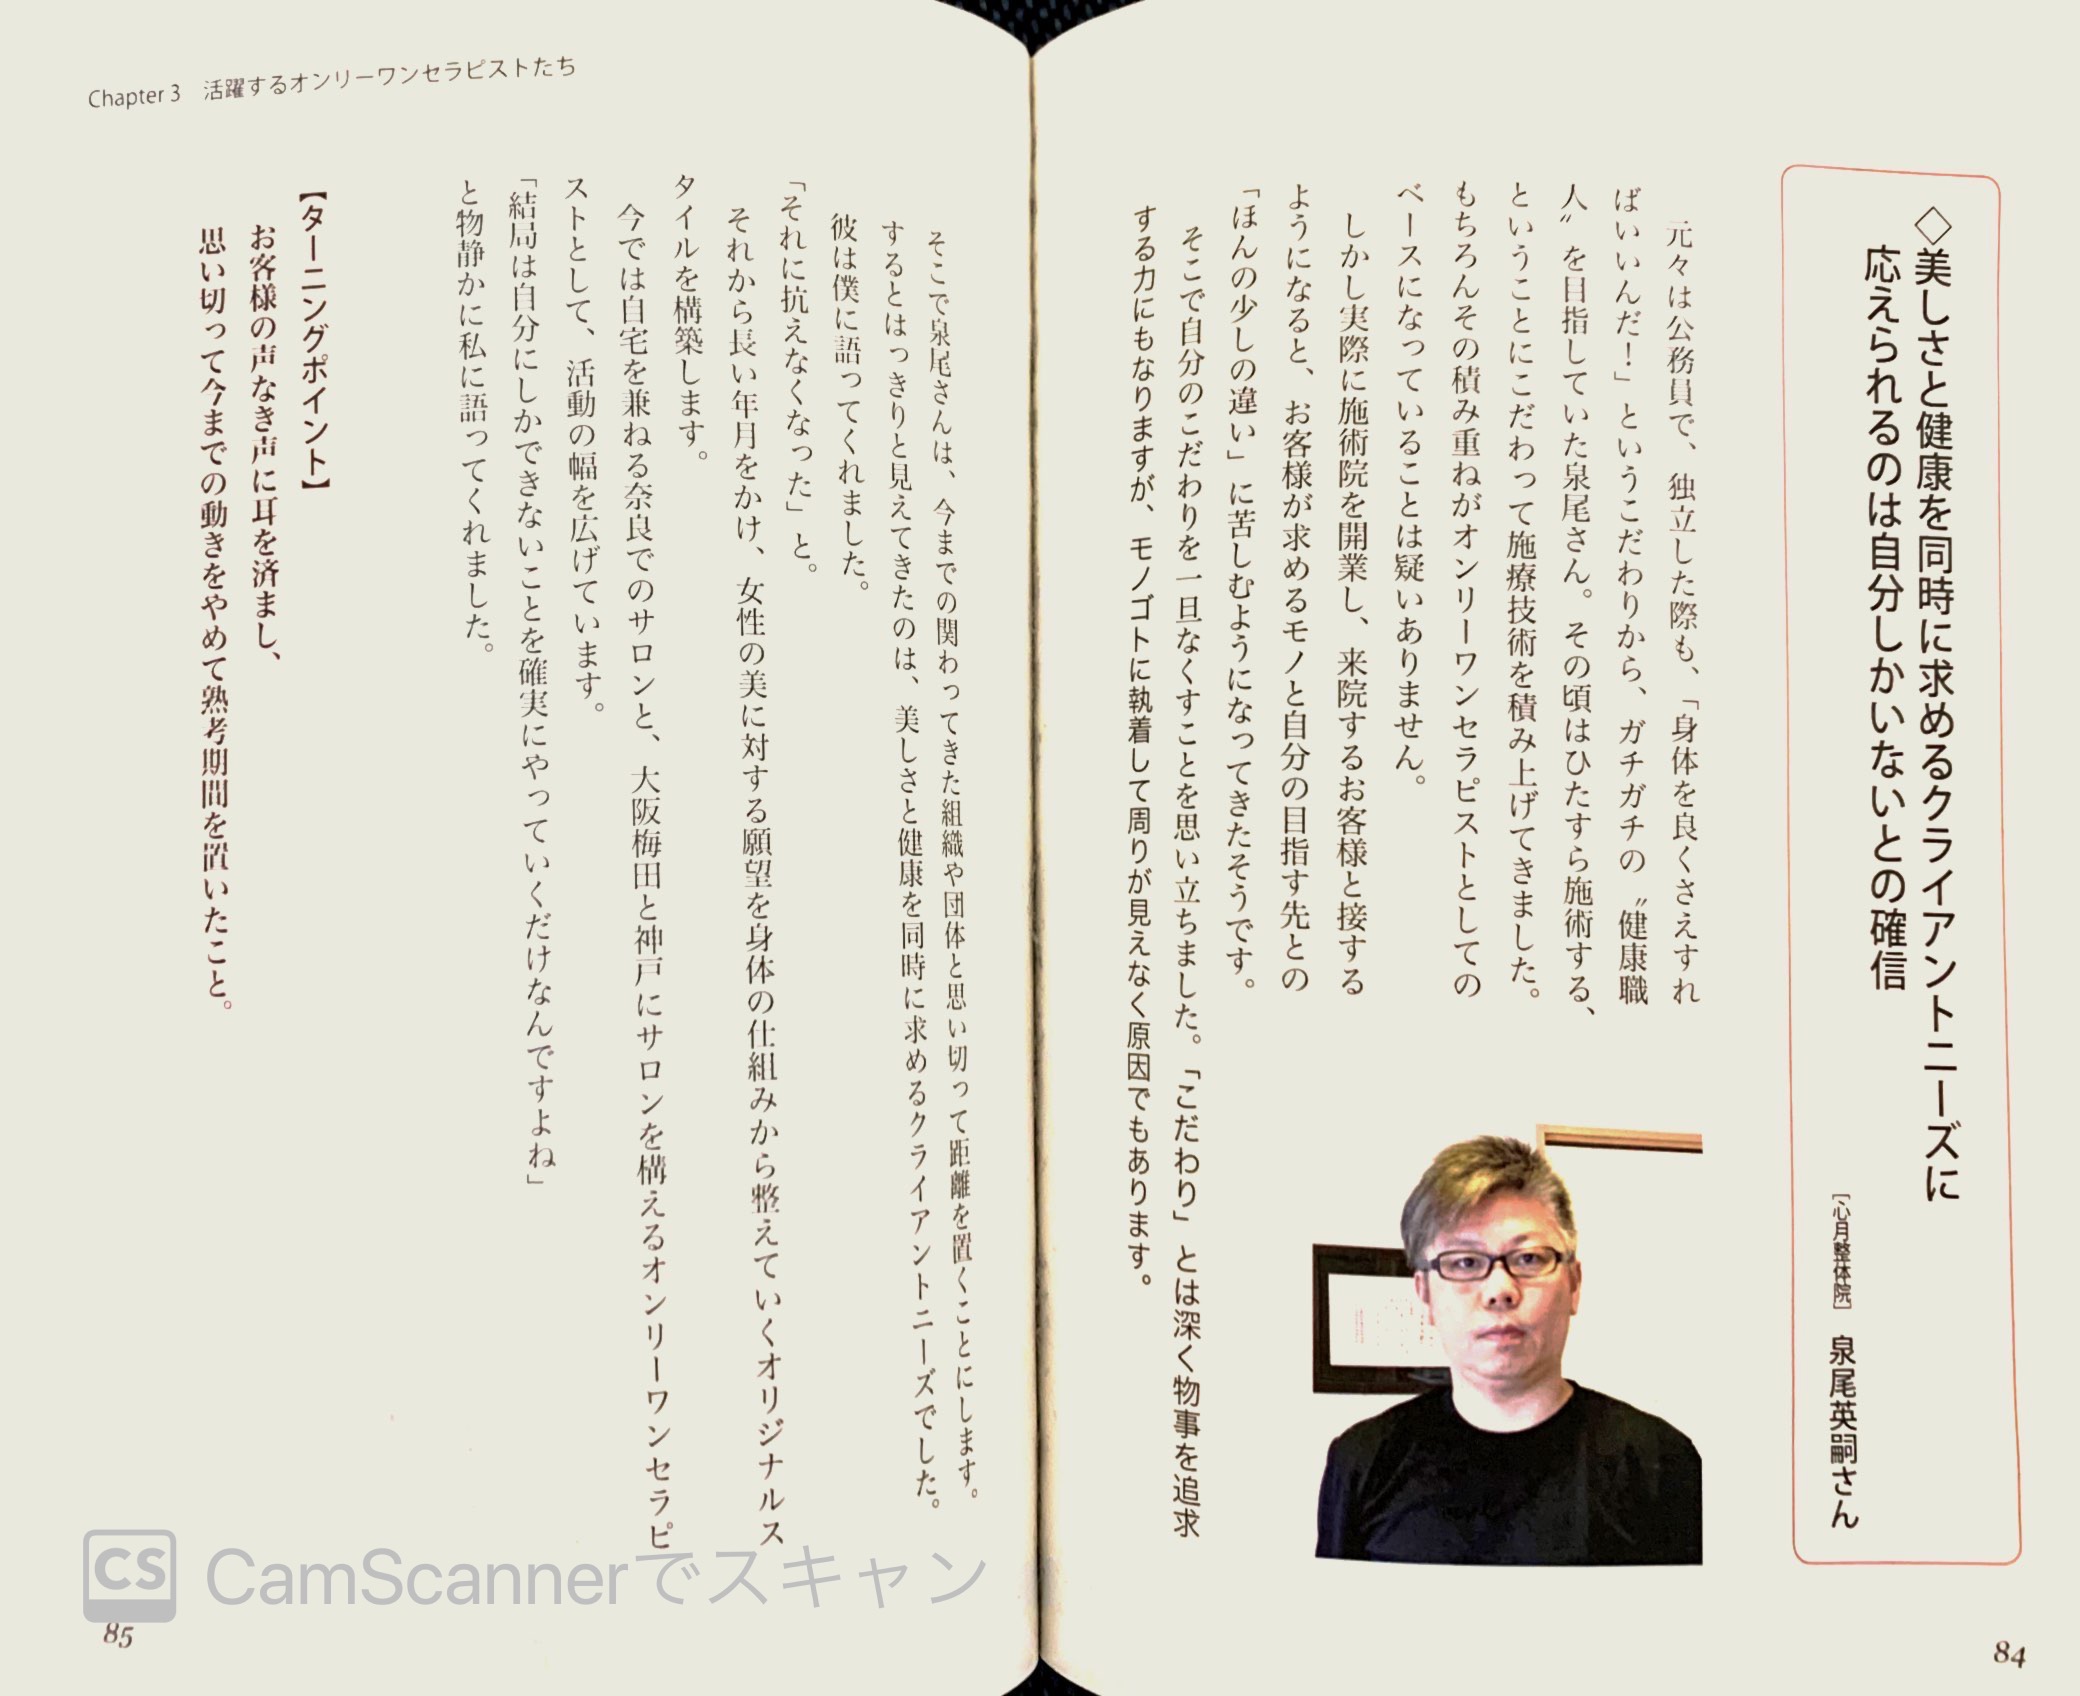 ◇美しさと健康を同時に求めるクライアントニーズに
応えられるのは自分しかいないとの確信
［心月整体院］　泉尾英嗣さん
元々は公務員で、独立した際も、「身体を良くさえすれ
ばいいんだ！」というこだわりから、ガチガチの〝健康職
人〟を目指していた泉尾さん。その頃はひたすら施術する、
ということにこだわって施療技術を積み上げてきました。
もちろんその積み重ねがオンリーワンセラピストとしての
ベースになっていることは疑いありません。
しかし実際に施術院を開業し、来院するお客様と接する
ようになると、お客様が求めるモノと自分の目指す先との
「ほんの少しの違い」に苦しむようになってきたそうです。
そこで自分のこだわりを一旦なくすことを思い立ちました。「こだわり」とは深く物事を追求
する力にもなりますが、モノゴトに執着して周りが見えなく原因でもあります。
84
Chapter 3　活躍するオンリーワンセラピストたち
そこで泉尾さんは、今までの関わってきた組織や団体と思い切って距離を置くことにします。
するとはっきりと見えてきたのは、美しさと健康を同時に求めるクライアントニーズでした。
彼は僕に語ってくれました。
「それに抗えなくなった」と。
それから長い年月をかけ、女性の美に対する願望を身体の仕組みから整えていくオリジナルス
タイルを構築します。
今では自宅を兼ねる奈良でのサロンと、大阪梅田と神戸にサロンを構えるオンリーワンセラピ
ストとして、活動の幅を広げています。
「結局は自分にしかできないことを確実にやっていくだけなんですよね」
と物静かに私に語ってくれました。
【ターニングポイント】
お客様の声なき声に耳を済まし、
思い切って今までの動きをやめて熟考期間を置いたこと。
CS CamScannerでスキャン
85